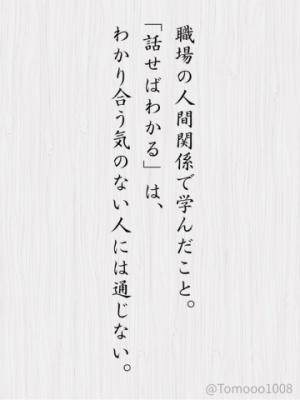 職場の人間関係で学んだこと。
「話せばわかる」は、
わかり合う気のない人には通じない。
@Tomooo1008